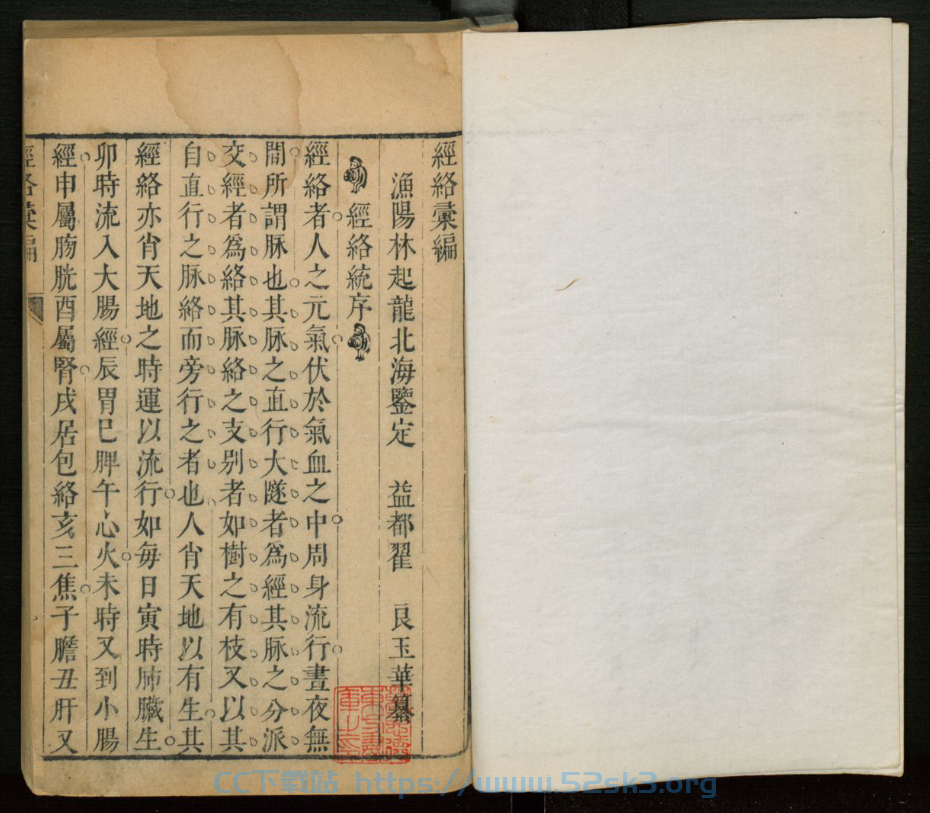 經絡彚編
漁陽林起龍北海鑒定 益都翟 良玉華纂
經絡統序
經絡者人之元氣伏於氣血之中周身流行晝夜無
間所謂脉也其脉之直行大隧者爲經其脉之分派
交經者爲絡其脉絡之支别者如樹之有枝又以其
自直行之脉絡而旁行之者也人肖天地以有生其
經絡亦肖天地之時運以流行如每日寅時肺臟生
卯時流入大腸經辰胃巳脾午心火未時又到小腸
經申屬膀胱酉屬腎戌居包絡亥三焦子膽丑肝又
經絡彚編
CC下载站 https://www.52sk3.org